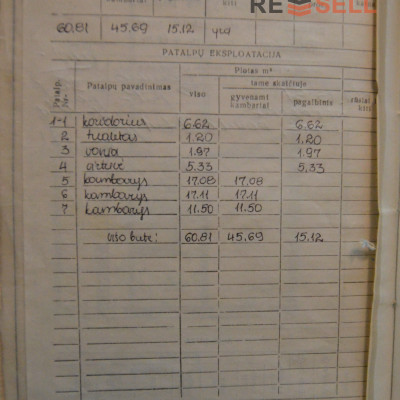 RE SELL
60.81 45.69 15.12 yra
PATALPŲ EKSPLOATACIJA
Patalp. Nr. Patalpų pavadinimas Plotas m²
viso tame skaičiuje
gyvenami kambariai pagalbinis
1-1 koridorius 6.62 6.62
2 tualetas 1.20 1.20
3 vonia 1.97 1.97
4 virtuvė 5.33 5.33
5 kambarys 17.08 17.08
6 kambarys 17.11 17.11
7 kambarys 11.50 11.50
viso bute: 60.81 45.69 15.12